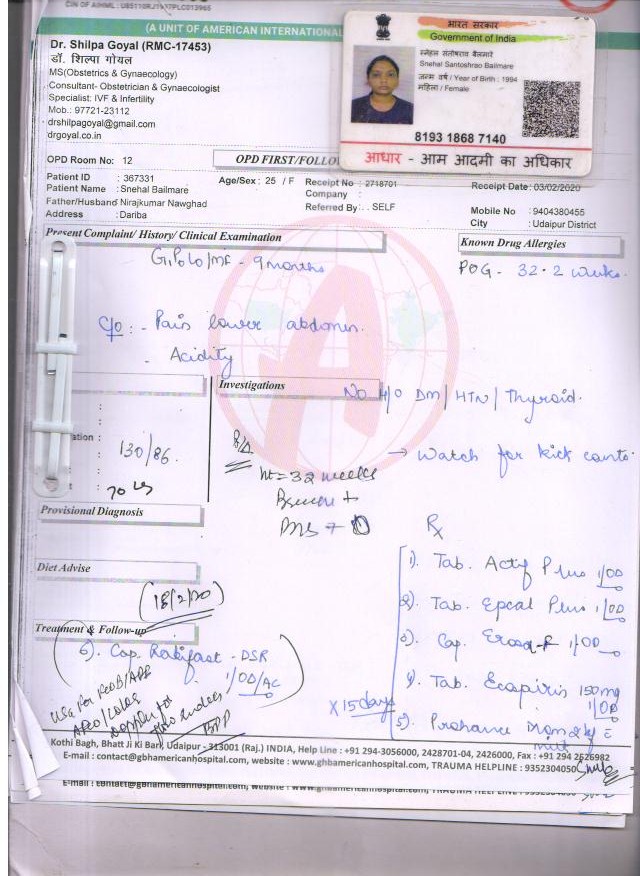 CIN OF AIHML : U85110RJ1997PLC013965
(A UNIT OF AMERICAN INTERNATIONAL
Dr. Shilpa Goyal (RMC-17453)
डॉ. शिल्पा गोयल
MS(Obstetrics & Gynaecology)
Consultant- Obstetrician & Gynaecologist
Specialist: IVF & Infertility
Mob.: 97721-23112
drshilpagoyal@gmail.com
drgoyal.co.in
भारत सरकार
Government of India
स्नेहल संतोषराव बैलमारे
Snehal Santoshrao Bailmare
जन्म वर्ष / Year of Birth : 1994
महिला / Female
8193 1868 7140
आधार - आम आदमी का अधिकार
OPD Room No: 12
OPD FIRST/FOLLO
Patient ID : 367331
Age/Sex : 25 / F
Receipt No : 2718701
Receipt Date: 03/02/2020
Patient Name : Snehal Bailmare
Company :
Father/Husband Nirajkumar Nawghad
Referred By : . SELF
Mobile No : 9404380455
Address : Dariba
City : Udaipur District
Present Complaint/ History/ Clinical Examination
Known Drug Allergies
G1P0L0/MF - 9 months
POG - 32.2 weeks.
C/O :- Pain lower abdomen.
- Acidity
Investigations
No H/O DM/HTN/Thyroid.
ation :
130/86.
P/A
→ Watch for kick counts.
ht = 32 weeks
70 kg
Provisional Diagnosis
Rx
Diet Advise
1). Tab. Actif Plus 1/OD
(18/2/20)
2). Tab. Epcal Plus 1/OD
Treatment & Follow-up
3). Cap. Erosa-F 1/OD
6). Cap. Rabifast - DSR
1/OD/AC
4). Tab. Ecospirin 150mg
1/OD
X 15 days
5). Prohance
milk
USG For
BPP
Kothi Bagh, Bhatt Ji Ki Bari, Udaipur - 313001 (Raj.) INDIA, Help Line : +91 294-3056000, 2428701-04, 2426000, Fax : +91 294 2526982
E-mail : contact@gbhamericanhospital.com, website : www.gbhamericanhospital.com, TRAUMA HELPLINE : 9352304050
E-mail : contact@gbhamericanhospital.com, website : www.gbhamericanhospital.com, TRAUMA HELPLINE : 9352304050